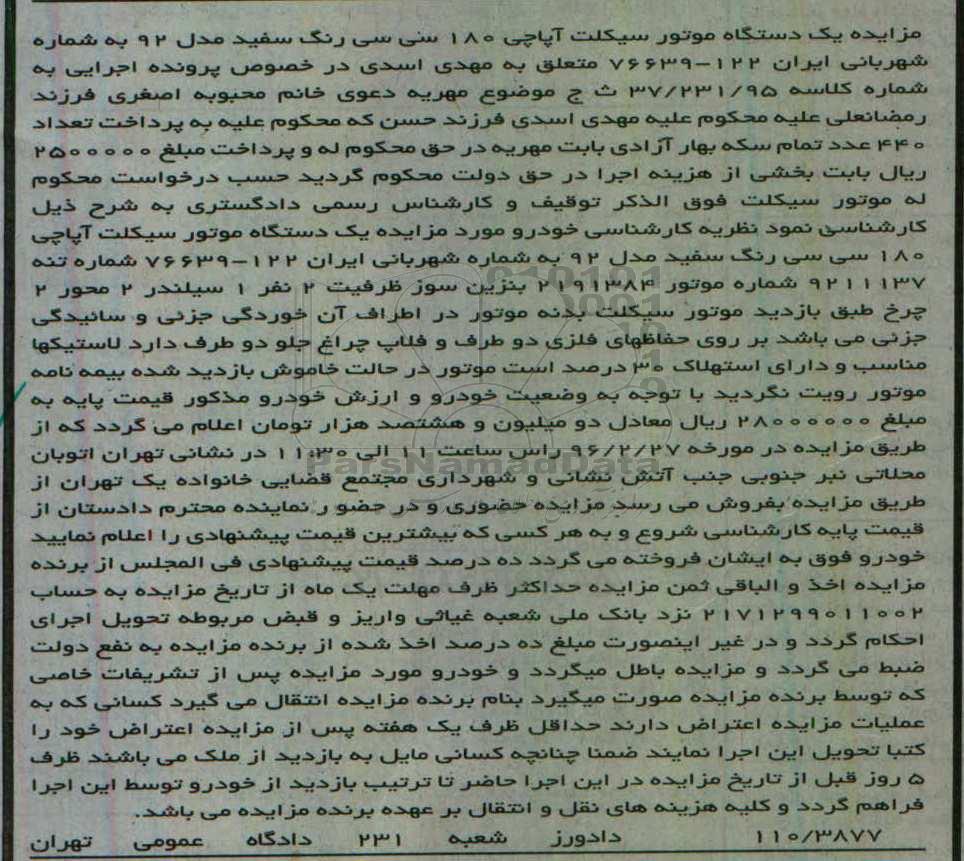 مزایده یک دستگاه موتور سیکلت آپاچی ۱۸۰ سی سی رنگ سفید مدل ۹۲ به شماره
شهربانی ایران ۱۲۲-۷۶۶۳۹ متعلق به مهدی اسدی در خصوص پرونده اجرایی به
شماره کلاسه ۳۷/۲۳۱/۹۵ ث ج موضوع مهریه دعوی خانم محبوبه اصغری فرزند
رمضانعلی علیه محکوم علیه مهدی اسدی فرزند حسن که محکوم علیه به پرداخت تعداد
۴۴۰ عدد تمام سکه بهار آزادی بابت مهریه در حق محکوم له و پرداخت مبلغ ۲۵۰۰۰۰۰
ریال بابت بخشی از هزینه اجرا در حق دولت محکوم گردید حسب درخواست محکوم
له موتور سیکلت فوق الذکر توقیف و کارشناس رسمی دادگستری به شرح ذیل
کارشناسی نمود نظریه کارشناسی خودرو مورد مزایده یک دستگاه موتور سیکلت آپاچی
۱۸۰ سی سی رنگ سفید مدل ۹۲ به شماره شهربانی ایران ۱۲۲-۷۶۶۳۹ شماره تنه
۹۲۱۱۱۳۷ شماره موتور ۲۱۹۱۳۸۴ بنزین سوز ظرفیت ۲ نفر ۱ سیلندر ۲ محور ۲
چرخ طبق بازدید موتور سیکلت بدنه موتور در اطراف آن خوردگی جزئی و سائیدگی
جزئی می باشد بر روی حفاظهای فلزی دو طرف و فلاپ چراغ جلو دو طرف دارد لاستیکها
مناسب و دارای استهلاک ۳۰ درصد است موتور در حالت خاموش بازدید شده بیمه نامه
موتور رویت نگردید با توجه به وضعیت خودرو و ارزش خودرو مذکور قیمت پایه به
مبلغ ۲۸۰۰۰۰۰۰ ریال معادل دو میلیون و هشتصد هزار تومان اعلام می گردد که از
طریق مزایده در مورخه ۹۶/۲/۲۷ راس ساعت ۱۱ الی ۱۱:۳۰ در نشانی تهران اتوبان
محلاتی نبر جنوبی جنب آتش نشانی و شهرداری مجتمع قضایی خانواده یک تهران از
طریق مزایده بفروش می رسد مزایده حضوری و در حضو ر نماینده محترم دادستان از
قیمت پایه کارشناسی شروع و به هر کسی که بیشترین قیمت پیشنهادی را اعلام نمایید
خودرو فوق به ایشان فروخته می گردد ده درصد قیمت پیشنهادی فی المجلس از برنده
مزایده اخذ و الباقی ثمن مزایده حداکثر ظرف مهلت یک ماه از تاریخ مزایده به حساب
۲۱۷۱۲۹۹۰۱۱۰۰۲ نزد بانک ملی شعبه غیاثی واریز و قبض مربوطه تحویل اجرای
احکام گردد و در غیر اینصورت مبلغ ده درصد اخذ شده از برنده مزایده به نفع دولت
ضبط می گردد و مزایده باطل میگردد و خودرو مورد مزایده پس از تشریفات خاصی
که توسط برنده مزایده صورت میگیرد بنام برنده مزایده انتقال می گیرد کسانی که به
عملیات مزایده اعتراض دارند حداقل ظرف یک هفته پس از مزایده اعتراض خود را
کتبا تحویل این اجرا نمایند ضمنا چنانچه کسانی مایل به بازدید از ملک می باشند ظرف
۵ روز قبل از تاریخ مزایده در این اجرا حاضر تا ترتیب بازدید از خودرو توسط این اجرا
فراهم گردد و کلیه هزینه های نقل و انتقال بر عهده برنده مزایده می باشد.
۱۱۰/۳۸۷۷ دادورز شعبه ۲۳۱ دادگاه عمومی تهران
ParsNamadData